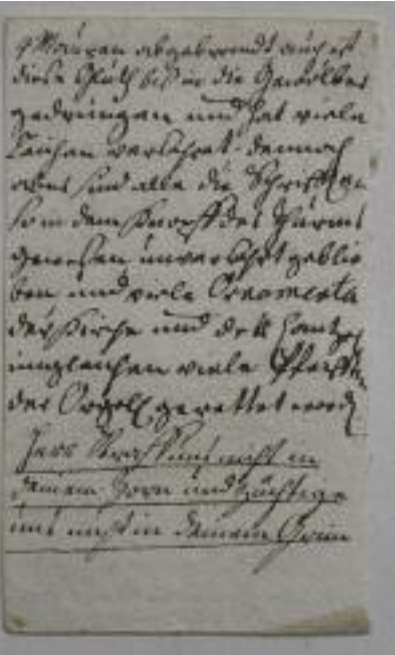 4 Mauren abgebrandt auch ist
diese Gluth bis in die Gewölber
gedrungen und hat viele
Leichen versehret. dennoch
aber sind alle die Schrifften
so in dem Knopff des Thurms
gewesen unversehrt geblie
ben und viele Ornamenta
der Kirche und der Cantzel
imgleichen viele Pfeiffen
der Orgell gerettet word
Herr Straff uns nicht in
deinem Zorn und züchtige
uns nicht in deinem Grim